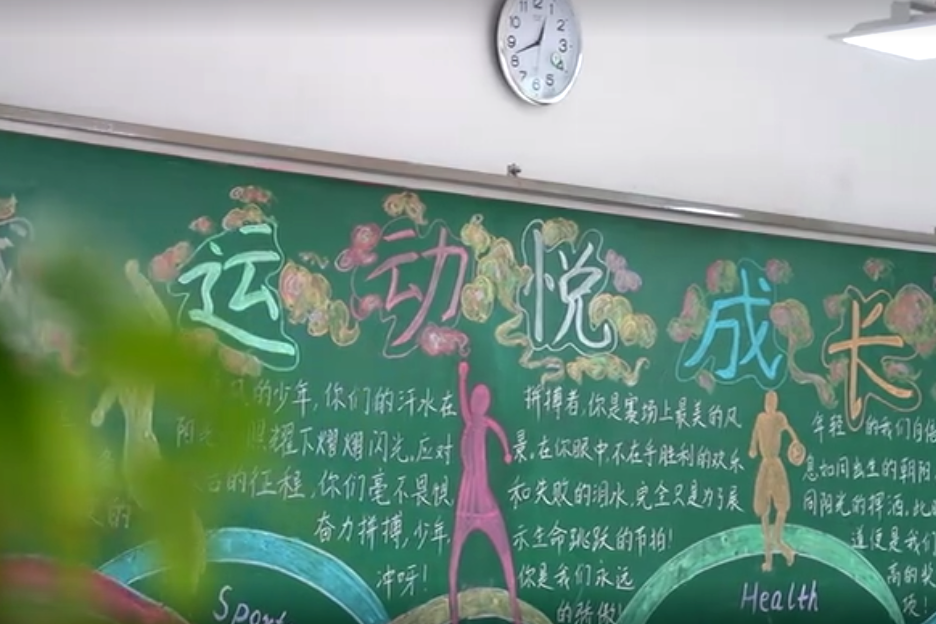 运动悦成长
的少年,你们的汗水在
阳 照耀下熠熠闪光。应对
的征程,你们毫不畏惧
奋力拼搏,少年,
冲呀!
拼搏者,你是赛场上最美的风
景。在你眼中,不在乎胜利的欢乐
和失败的泪水,完全只是为了展
示生命跳跃的节拍!
你是我们永远
的骄傲!
年轻 的我们自信
息如同出生的朝阳,
同阳光的挥洒,此
道便是我们
高的
Sport
Health
12 1 2 3 5 6 7 8 9 10 11